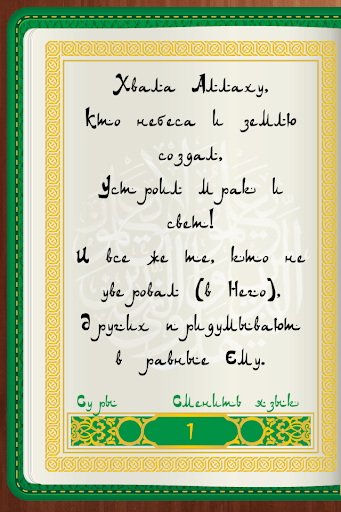 Хвала Аллаху,
Кто небеса и землю
создал,
Устроил мрак и
свет!
И все же те, кто не
уверовал (в Него),
Других придумывают
в равные Ему.
Суры Сменить язык
1